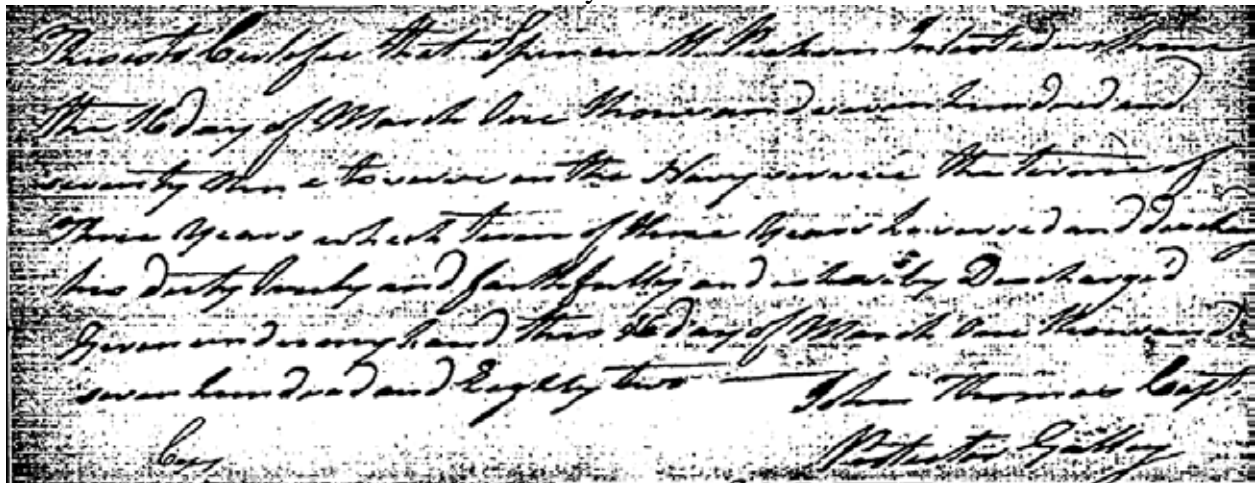 This is to Certifee that Spencer M Inlisted with me
the 16 day of March One thousand seven hundred and
seventy Nine to serve in the Navy service the term of
Three Years which term of three Years he served and
his duty truly and faithfully and is hereby Discharged
Given under my hand this 16 day of March One thousand
seven hundred and Eighty two — John Thomas Capt
Copy Protector Galley